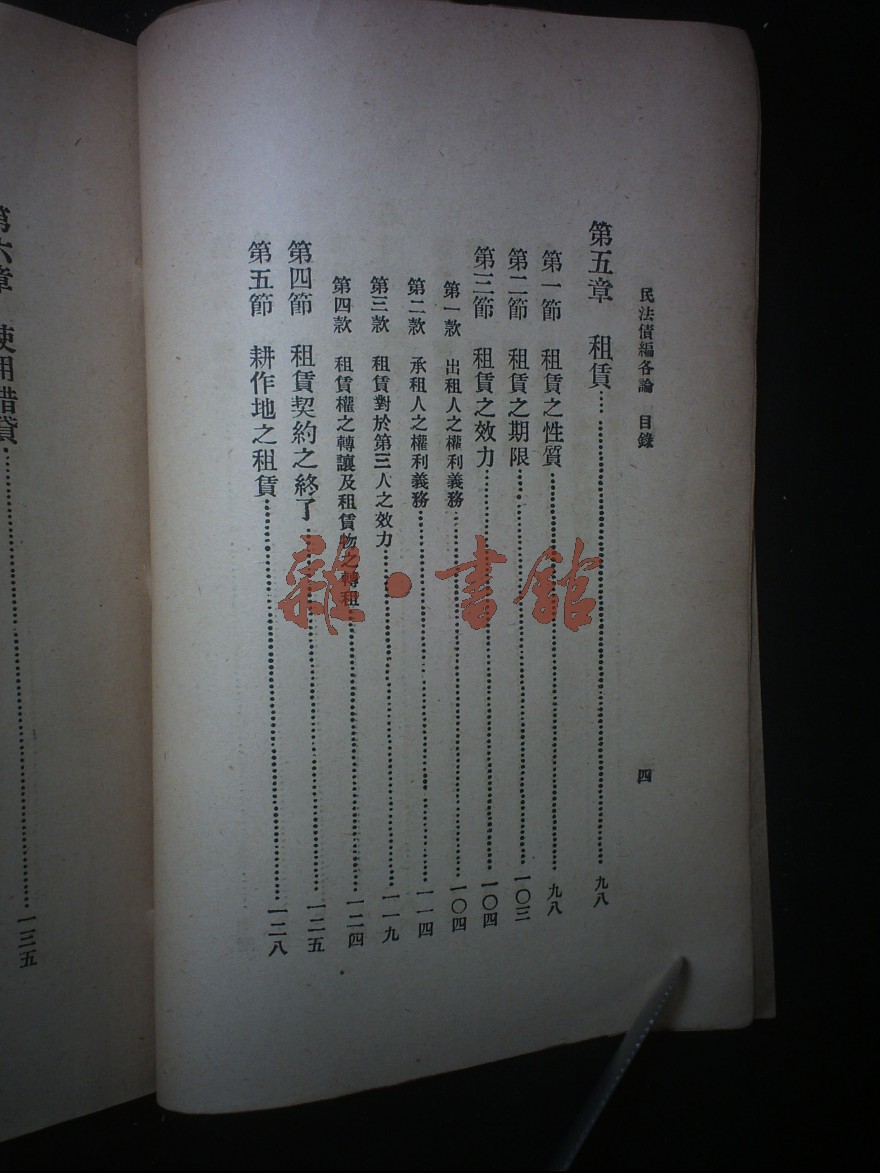 民法債編各論　目錄　四
第五章　租賃……九八
第一節　租賃之性質……九八
第二節　租賃之期限……一〇三
第三節　租賃之效力……一〇四
第一款　出租人之權利義務……一〇四
第二款　承租人之權利義務……一一四
第三款　租賃對於第三人之效力……一一九
第四款　租賃權之轉讓及租賃物之轉租……一二四
第四節　租賃契約之終了……一二五
第五節　耕作地之租賃……一二八
第六章　使用借貸……一三五
雜·書館